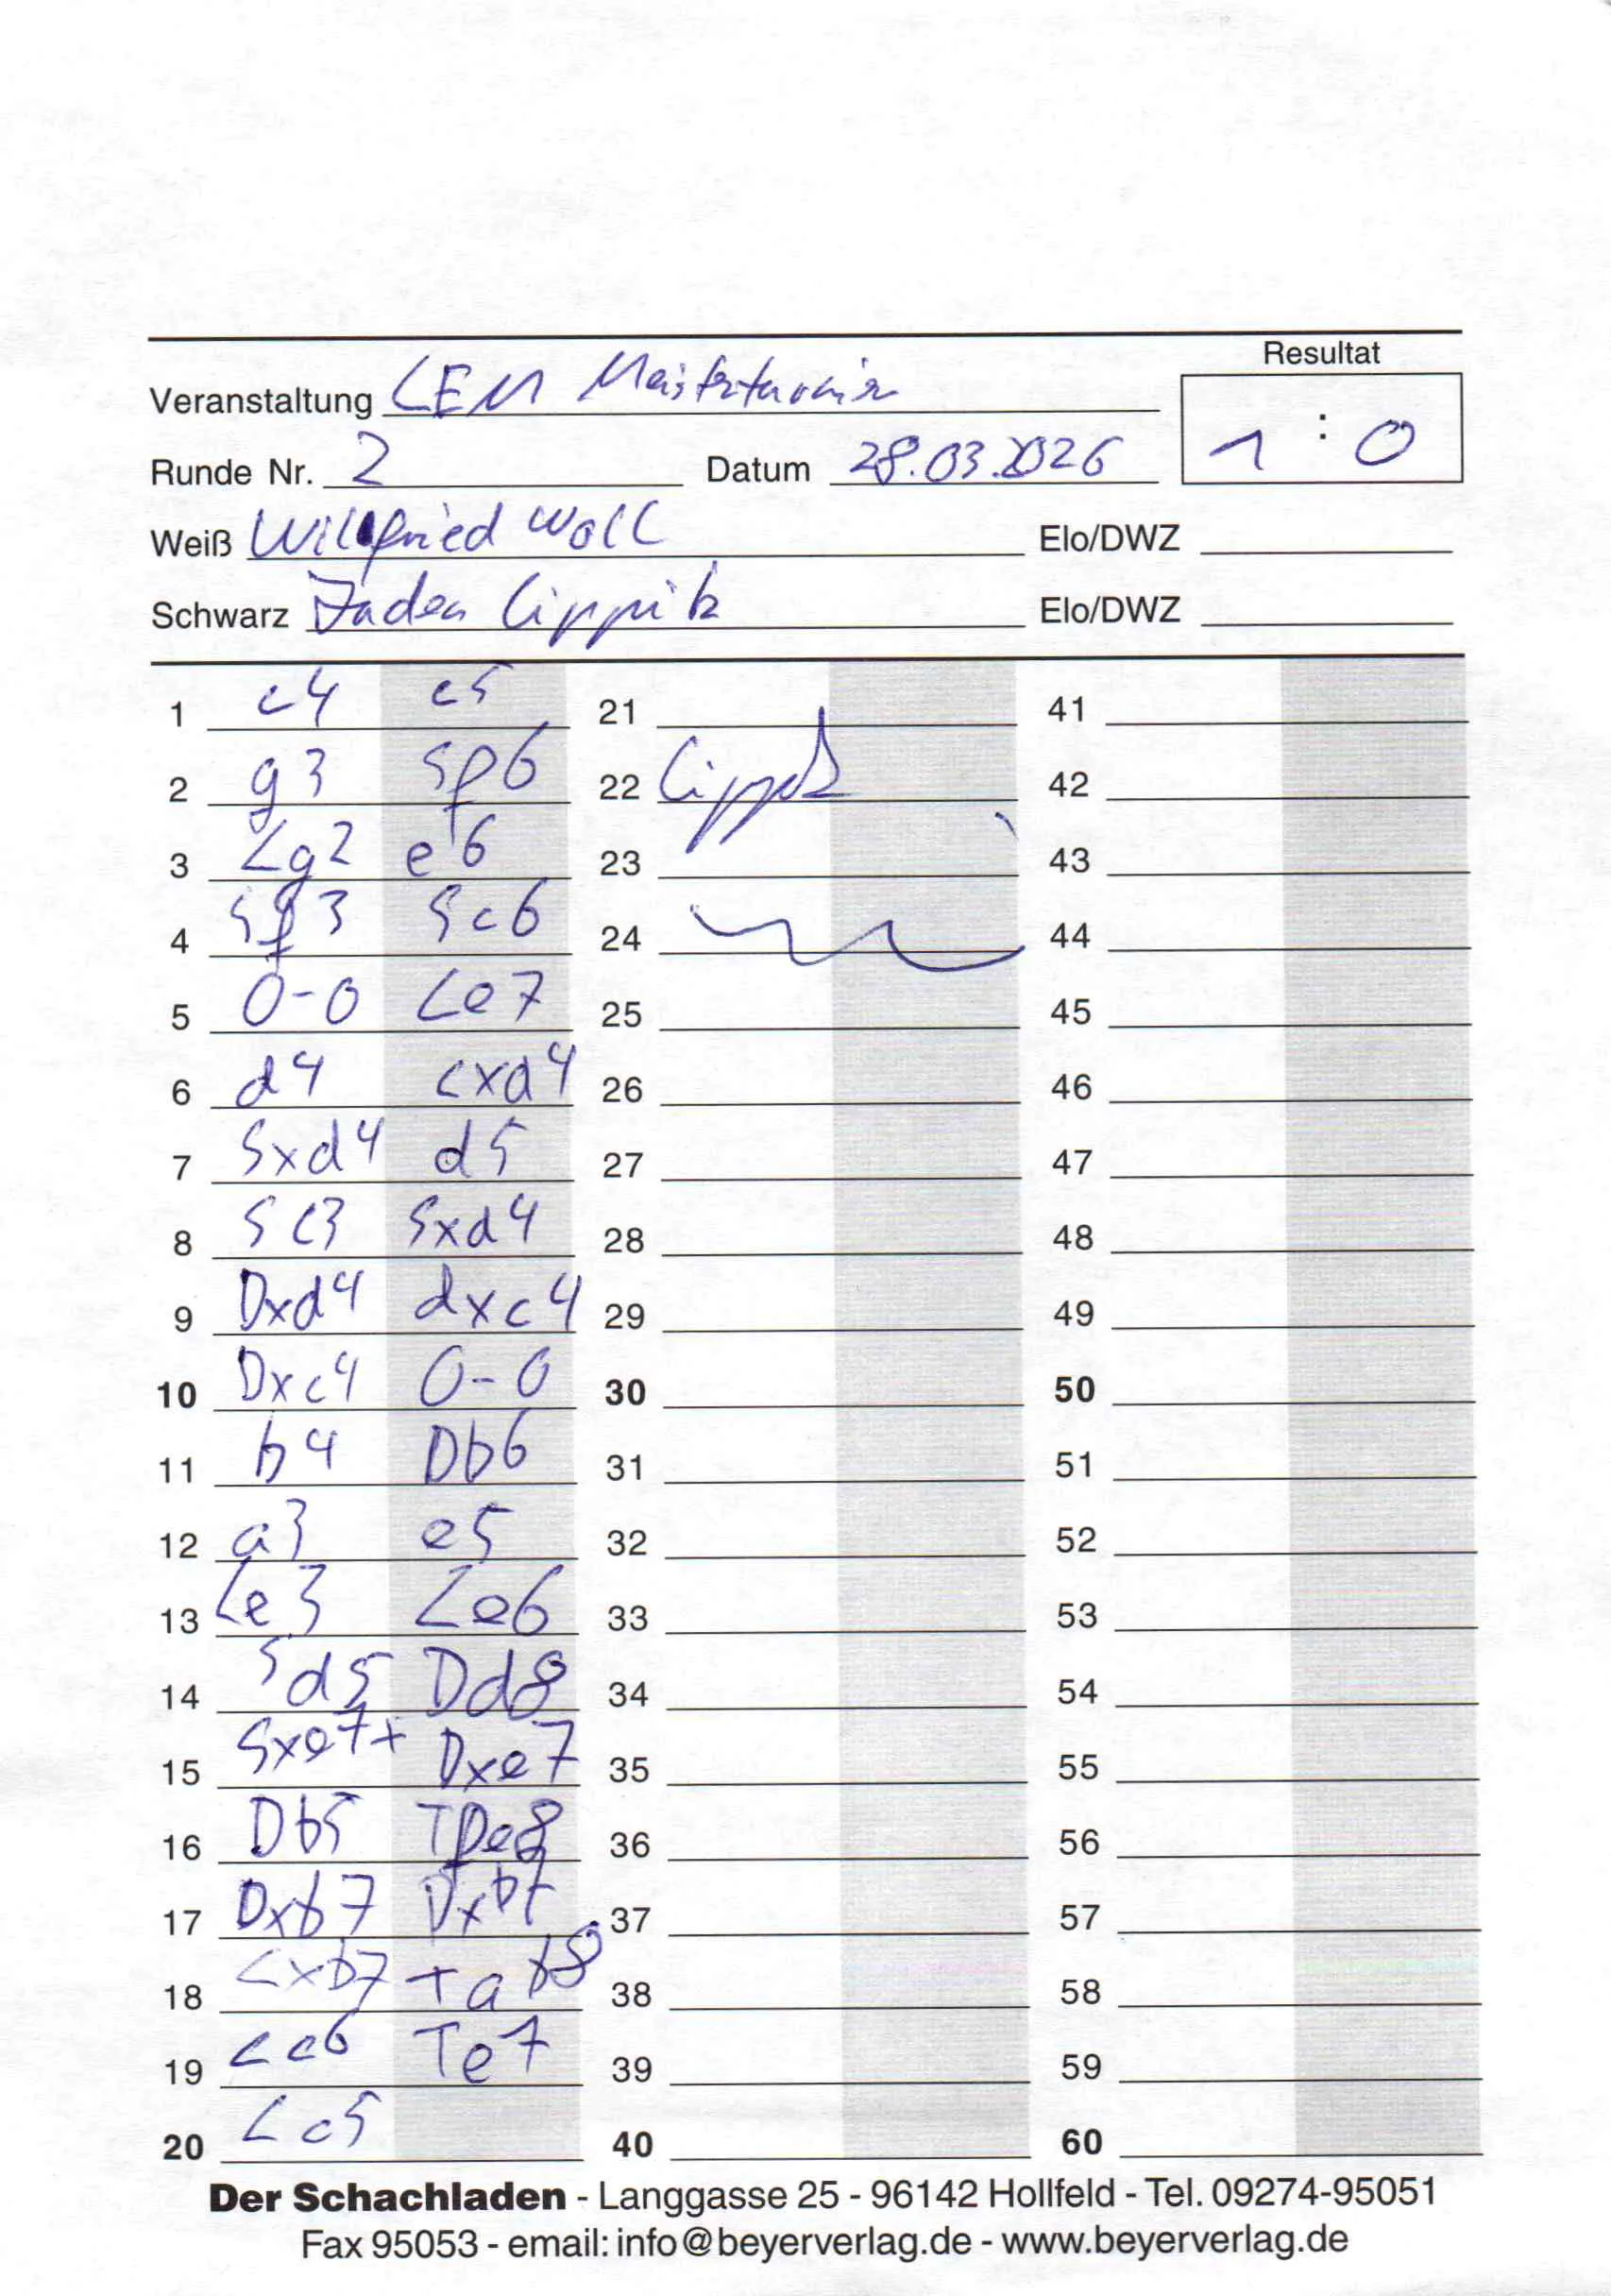 Resultat
Veranstaltung LEM Meisterturnier
1 : 0
Runde Nr. 2 Datum 28.03.2026
Weiß Willfried Woll Elo/DWZ
Schwarz Jaden Lippitz Elo/DWZ
1 c4 c5 21 41
2 g3 Sf6 22 42
3 Lg2 e6 23 43
4 Sf3 Sc6 24 44
5 0-0 Le7 25 45
6 d4 cxd4 26 46
7 Sxd4 d5 27 47
8 Sc3 Sxd4 28 48
9 Dxd4 dxc4 29 49
10 Dxc4 0-0 30 50
11 b4 Db6 31 51
12 a3 e5 32 52
13 Le3 Le6 33 53
14 Sd5 Dd8 34 54
15 Sxe7+ Dxe7 35 55
16 Db5 Tfe8 36 56
17 Dxb7 Dxb7 37 57
18 Lxb7 Tab8 38 58
19 Lc6 Te7 39 59
20 Lc5 40 60
Der Schachladen - Langgasse 25 - 96142 Hollfeld - Tel. 09274-95051
Fax 95053 - email: info@beyerverlag.de - www.beyerverlag.de